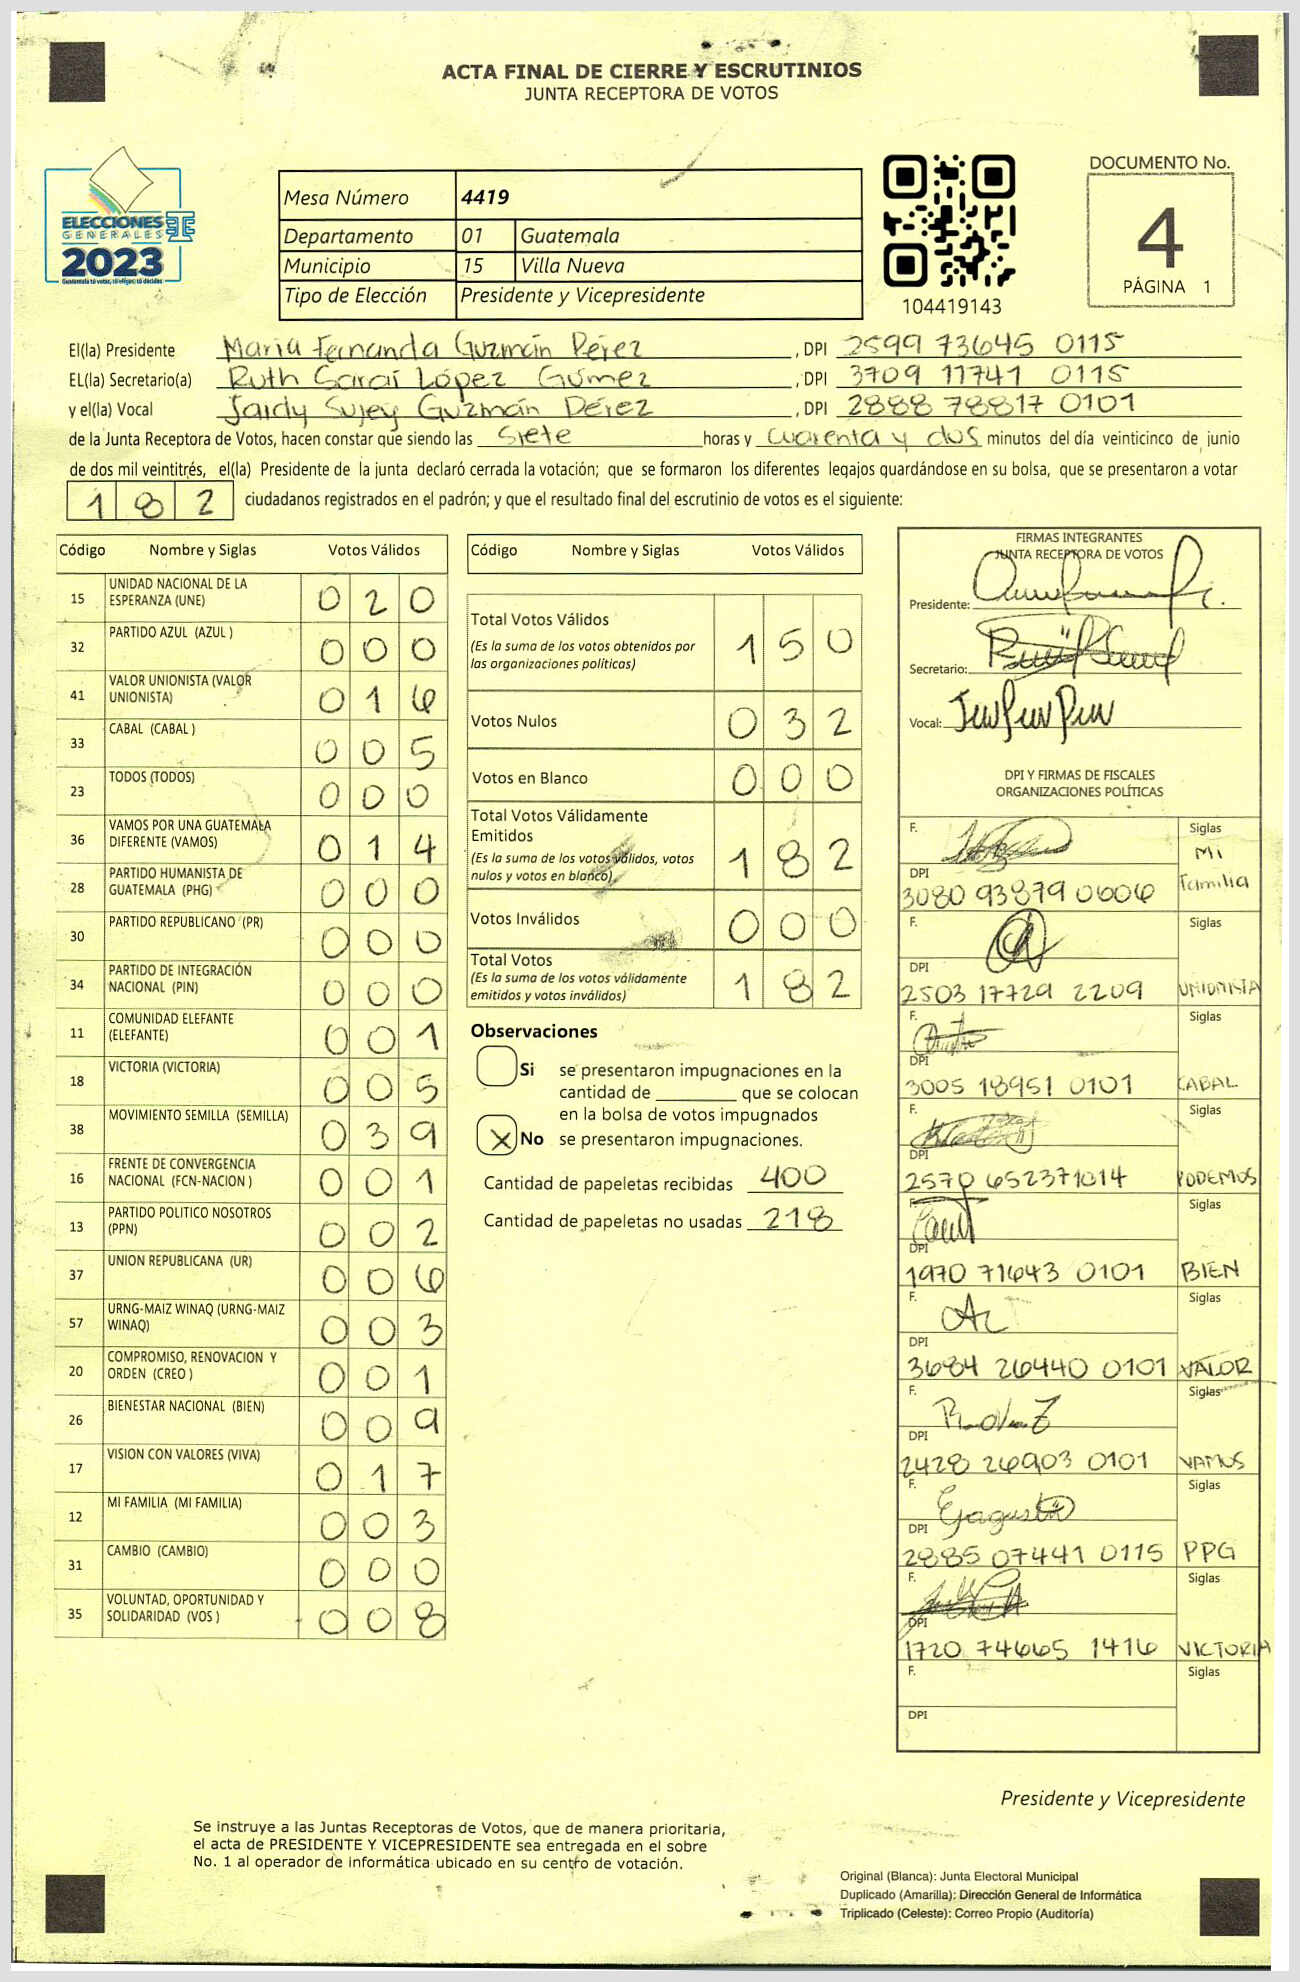 ACTA FINAL DE CIERRE Y ESCRUTINIOS
JUNTA RECEPTORA DE VOTOS
ELECCIONES
GENERALES
2023
Mesa Número 4419
Departamento 01 Guatemala
Municipio 15 Villa Nueva
Tipo de Elección Presidente y Vicepresidente
104419143
DOCUMENTO No.
4
PÁGINA 1
El(la) Presidente Maria Fernanda Guzmán Pérez, DPI 2599 73645 0115
EL(la) Secretario(a) Ruth Saraí López Gómez, DPI 3709 11741 0115
y el(la) Vocal Jardy Sujey Guzmán Pérez, DPI 2888 78817 0101
de la Junta Receptora de Votos, hacen constar que siendo las Siete horas y cuarenta y dos minutos del día veinticinco de junio
de dos mil veintitrés, el(la) Presidente de la junta declaró cerrada la votación; que se formaron los diferentes legajos guardándose en su bolsa, que se presentaron a votar
182 ciudadanos registrados en el padrón; y que el resultado final del escrutinio de votos es el siguiente:
Código Nombre y Siglas Votos Válidos
15 UNIDAD NACIONAL DE LA ESPERANZA (UNE) 020
32 PARTIDO AZUL (AZUL ) 000
41 VALOR UNIONISTA (VALOR UNIONISTA) 016
33 CABAL (CABAL ) 005
23 TODOS (TODOS) 000
36 VAMOS POR UNA GUATEMALA DIFERENTE (VAMOS) 014
28 PARTIDO HUMANISTA DE GUATEMALA (PHG) 000
30 PARTIDO REPUBLICANO (PR) 000
34 PARTIDO DE INTEGRACIÓN NACIONAL (PIN) 000
11 COMUNIDAD ELEFANTE (ELEFANTE) 001
18 VICTORIA (VICTORIA) 005
38 MOVIMIENTO SEMILLA (SEMILLA) 039
16 FRENTE DE CONVERGENCIA NACIONAL (FCN-NACION ) 001
13 PARTIDO POLITICO NOSOTROS (PPN) 002
37 UNION REPUBLICANA (UR) 006
57 URNG-MAIZ WINAQ (URNG-MAIZ WINAQ) 003
20 COMPROMISO, RENOVACION Y ORDEN (CREO ) 001
26 BIENESTAR NACIONAL (BIEN) 009
17 VISION CON VALORES (VIVA) 017
12 MI FAMILIA (MI FAMILIA) 003
31 CAMBIO (CAMBIO) 000
35 VOLUNTAD, OPORTUNIDAD Y SOLIDARIDAD (VOS ) 008
Código Nombre y Siglas Votos Válidos
Total Votos Válidos 150
(Es la suma de los votos obtenidos por
las organizaciones políticas)
Votos Nulos 032
Votos en Blanco 000
Total Votos Válidamente
Emitidos 182
(Es la suma de los votos válidos, votos
nulos y votos en blanco)
Votos Inválidos 000
Total Votos 182
(Es la suma de los votos válidamente
emitidos y votos inválidos)
Observaciones
Si se presentaron impugnaciones en la
cantidad de ________ que se colocan
en la bolsa de votos impugnados
X No se presentaron impugnaciones.
Cantidad de papeletas recibidas 400
Cantidad de papeletas no usadas 218
FIRMAS INTEGRANTES
JUNTA RECEPTORA DE VOTOS
Presidente:
Secretario:
Vocal:
DPI Y FIRMAS DE FISCALES
ORGANIZACIONES POLÍTICAS
F. Siglas
DPI Mi Familia
3080 93879 0606
F. Siglas
DPI
2503 17729 2209 UNIONISTA
F. Siglas
DPI
3005 18951 0101 CABAL
F. Siglas
DPI
2570 652371014 PODEMOS
F. Siglas
DPI
1970 71643 0101 BIEN
F. Siglas
DPI
3684 26440 0101 VALOR
F. Siglas
DPI
2428 26903 0101 VAMOS
F. Siglas
DPI
2885 07441 0115 PPG
F. Siglas
DPI
1720 74665 1416 VICTORIA
F. Siglas
DPI
Presidente y Vicepresidente
Se instruye a las Juntas Receptoras de Votos, que de manera prioritaria,
el acta de PRESIDENTE Y VICEPRESIDENTE sea entregada en el sobre
No. 1 al operador de informática ubicado en su centro de votación.
Original (Blanca): Junta Electoral Municipal
Duplicado (Amarilla): Dirección General de Informática
Triplicado (Celeste): Correo Propio (Auditoría)